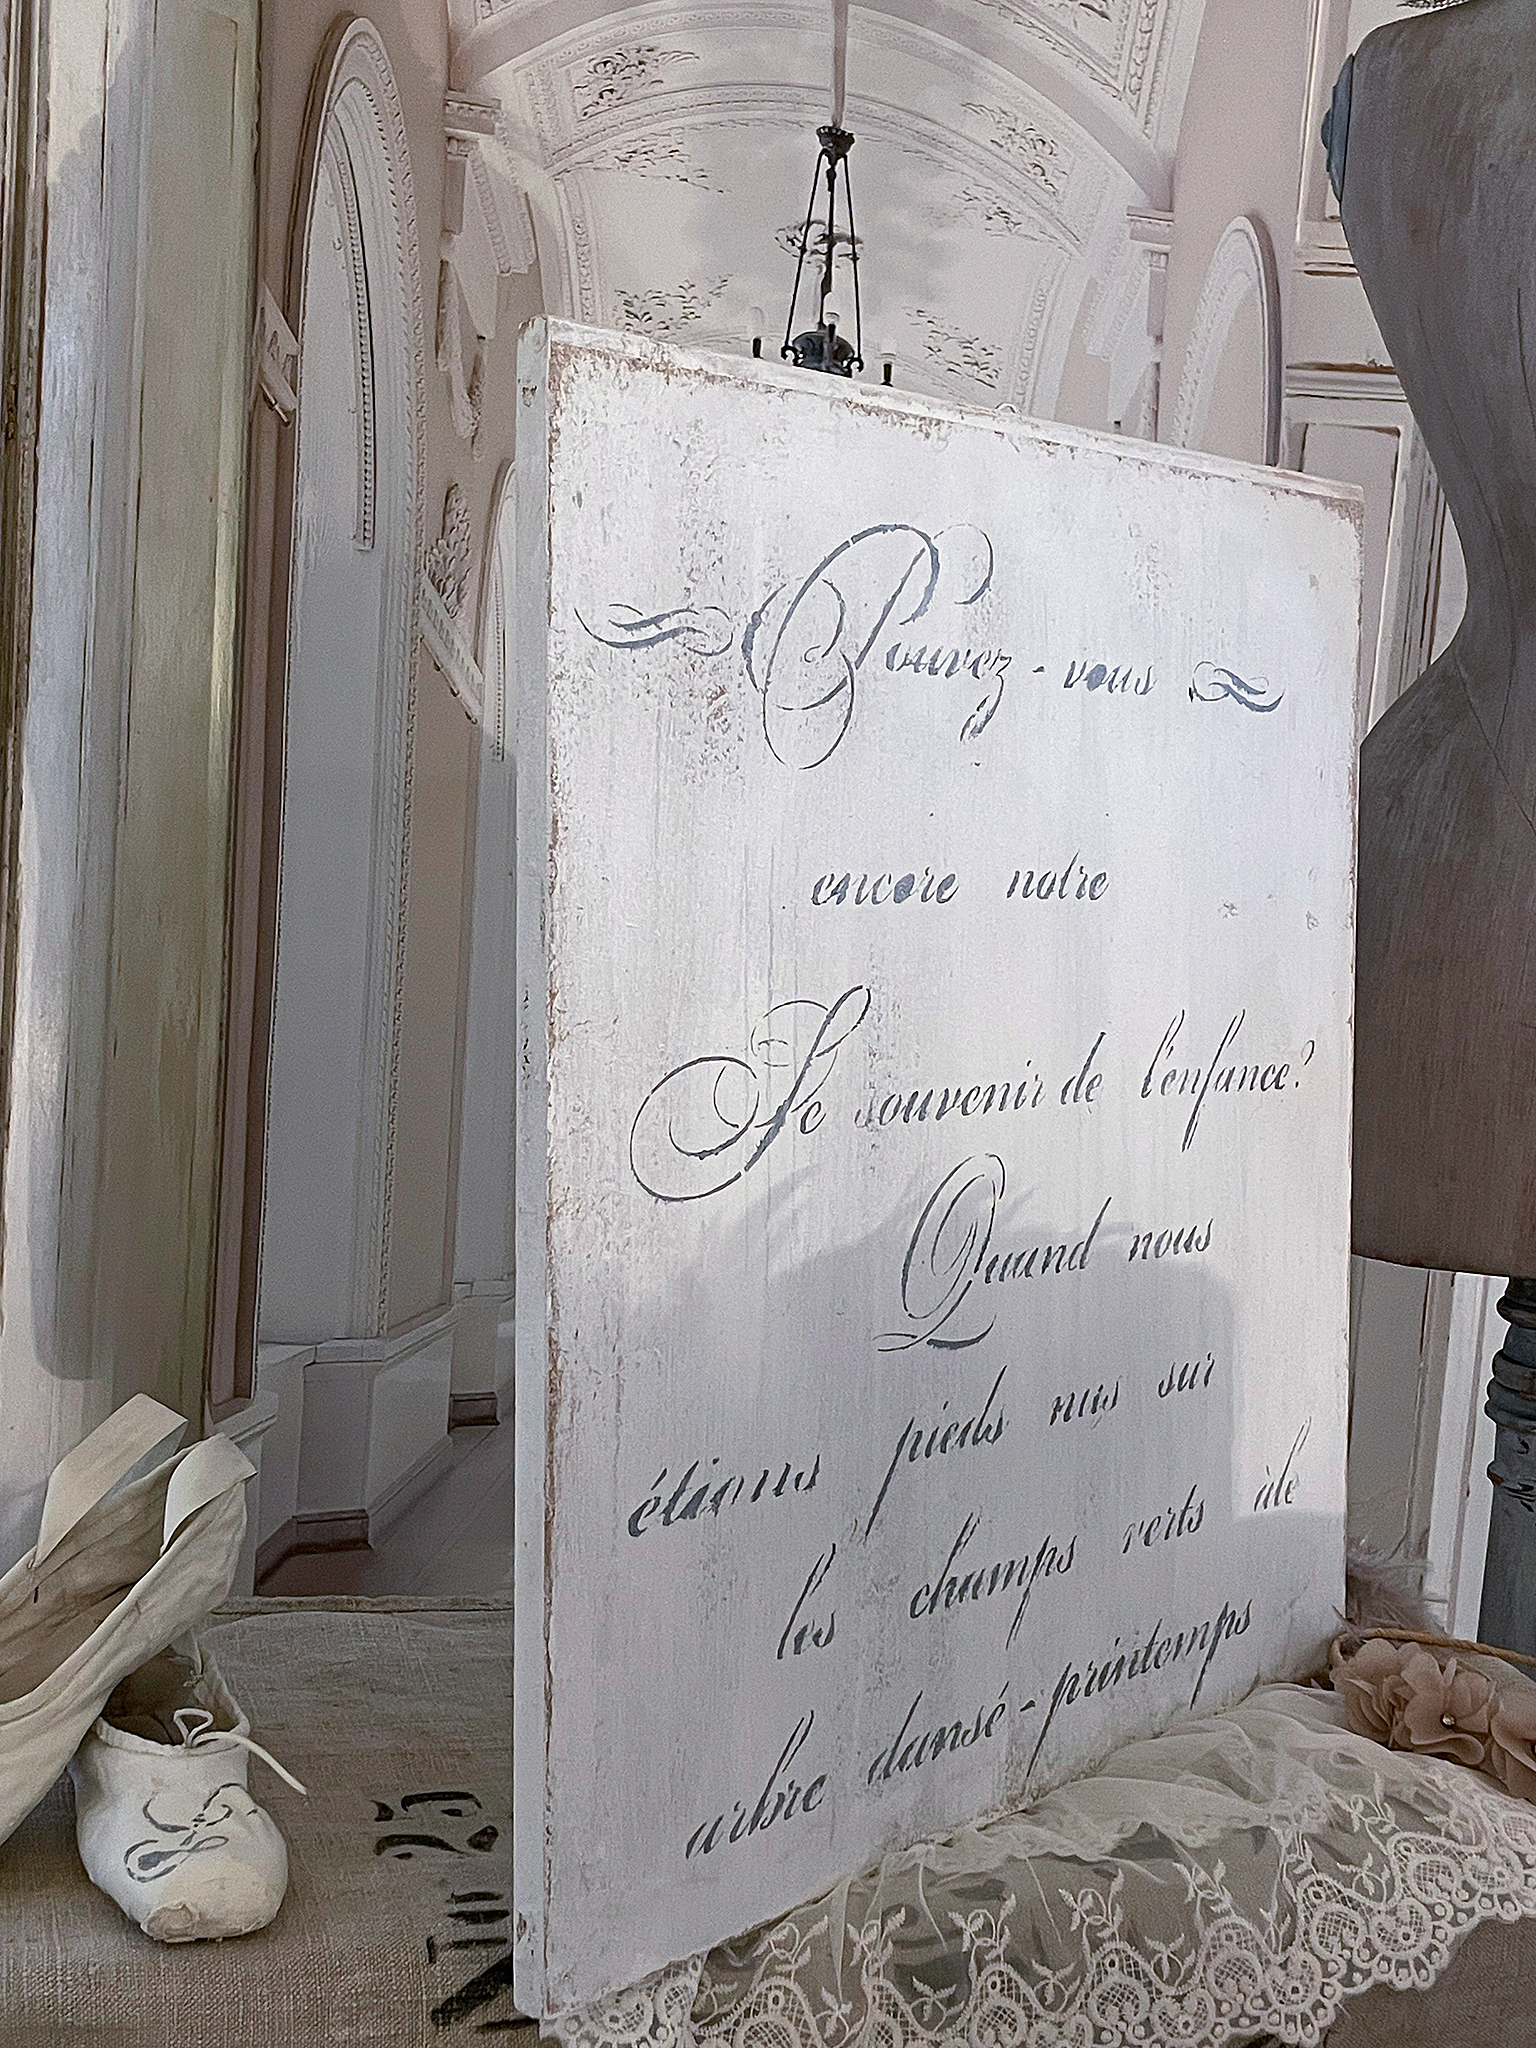 Pouvez-vous
encore notre
Se souvenir de l'enfance?
Quand nous
étions pieds nus sur
les champs verts àle
arbre dansé-printemps